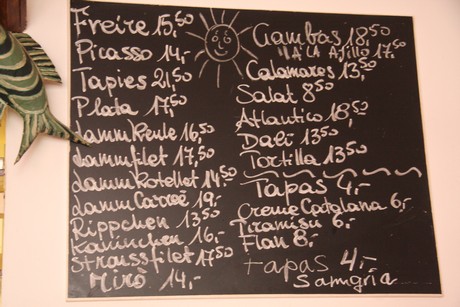 Freire 15,50
Picasso 14,-
Tapies 21,50
Plata 17,50
Lammkeule 16,50
Lammfilet 17,50
Lammkotellet 14,50
Lamm Carreè 19,-
Rippchen 13,50
Kaninchen 16,-
Straussfilet 17,50
Mirò 14,-
Gambas 18,50
"A LA Ajillo 17,50
Calamares 13,50
Salat 8,50
Atlantico 18,50
Dali 13,50
Tortilla 13,50
Tapas 4,-
Creme Catalana 6,-
Tiramisu 6,-
Flan 8,-
Tapas 4,-
Samgria